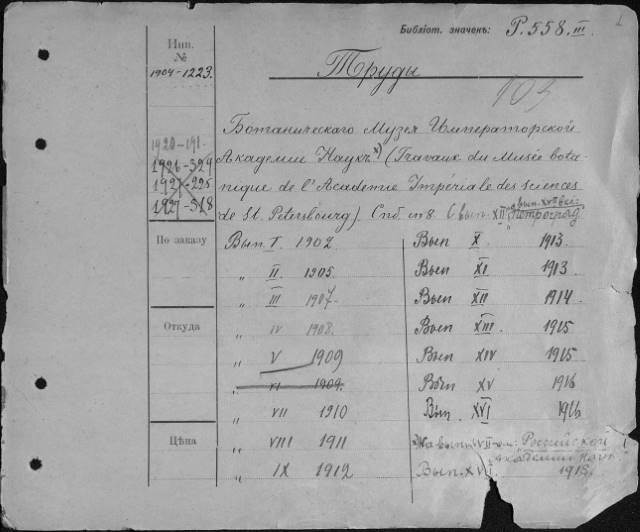 Библіот. значенъ: Р. 558. III
Инв.
№
1904-1223.
Труды
103
1920-191
1926-324
1921-225
1927-518
Ботаническаго Музея Императорской
Академіи Наукъ (Travaux du Musée bota-
nique de l'Academie Impériale des sciences
de St. Petersbourg). Спб. in 8. Свып. XII Петроградъ
По заказу
Вып. I. 1902
Вып X. 1913
" II. 1905.
Вып XI 1913
" III 1907.
Вып XII 1914
Откуда
" IV 1908.
Вып XIII. 1915
" V 1909
Вып XIV 1915
" VI 1909.
Вып XV 1916
" VII 1910
Вып. XVI 1916
Цѣна
" VIII 1911
Россійской
" IX 1912
Академіи Наукъ
Вып. XVII 1918.